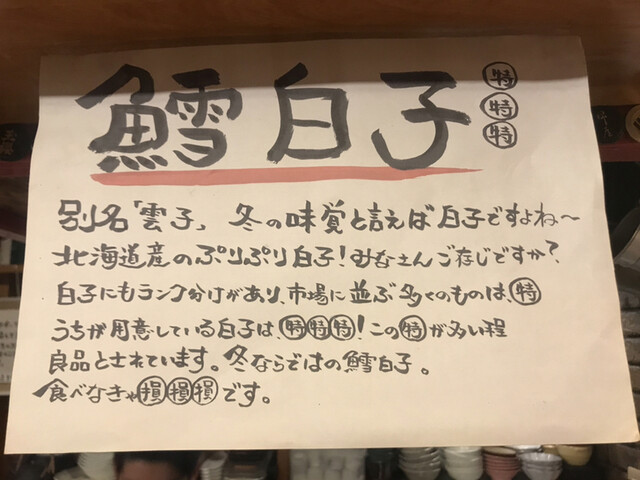 鱈白子 ㊕㊕㊕
別名「雲子」 冬の味覚と言えば白子ですよね〜
北海道産のぷりぷり白子!みなさんご存じですか?
白子にもランク分けがあり、市場に並ぶ多くのものは、㊕
うちが用意している白子は、㊕㊕㊕!この㊕が多い程
良品とされています。冬ならではの鱈白子。
食べなきゃ損損損です。